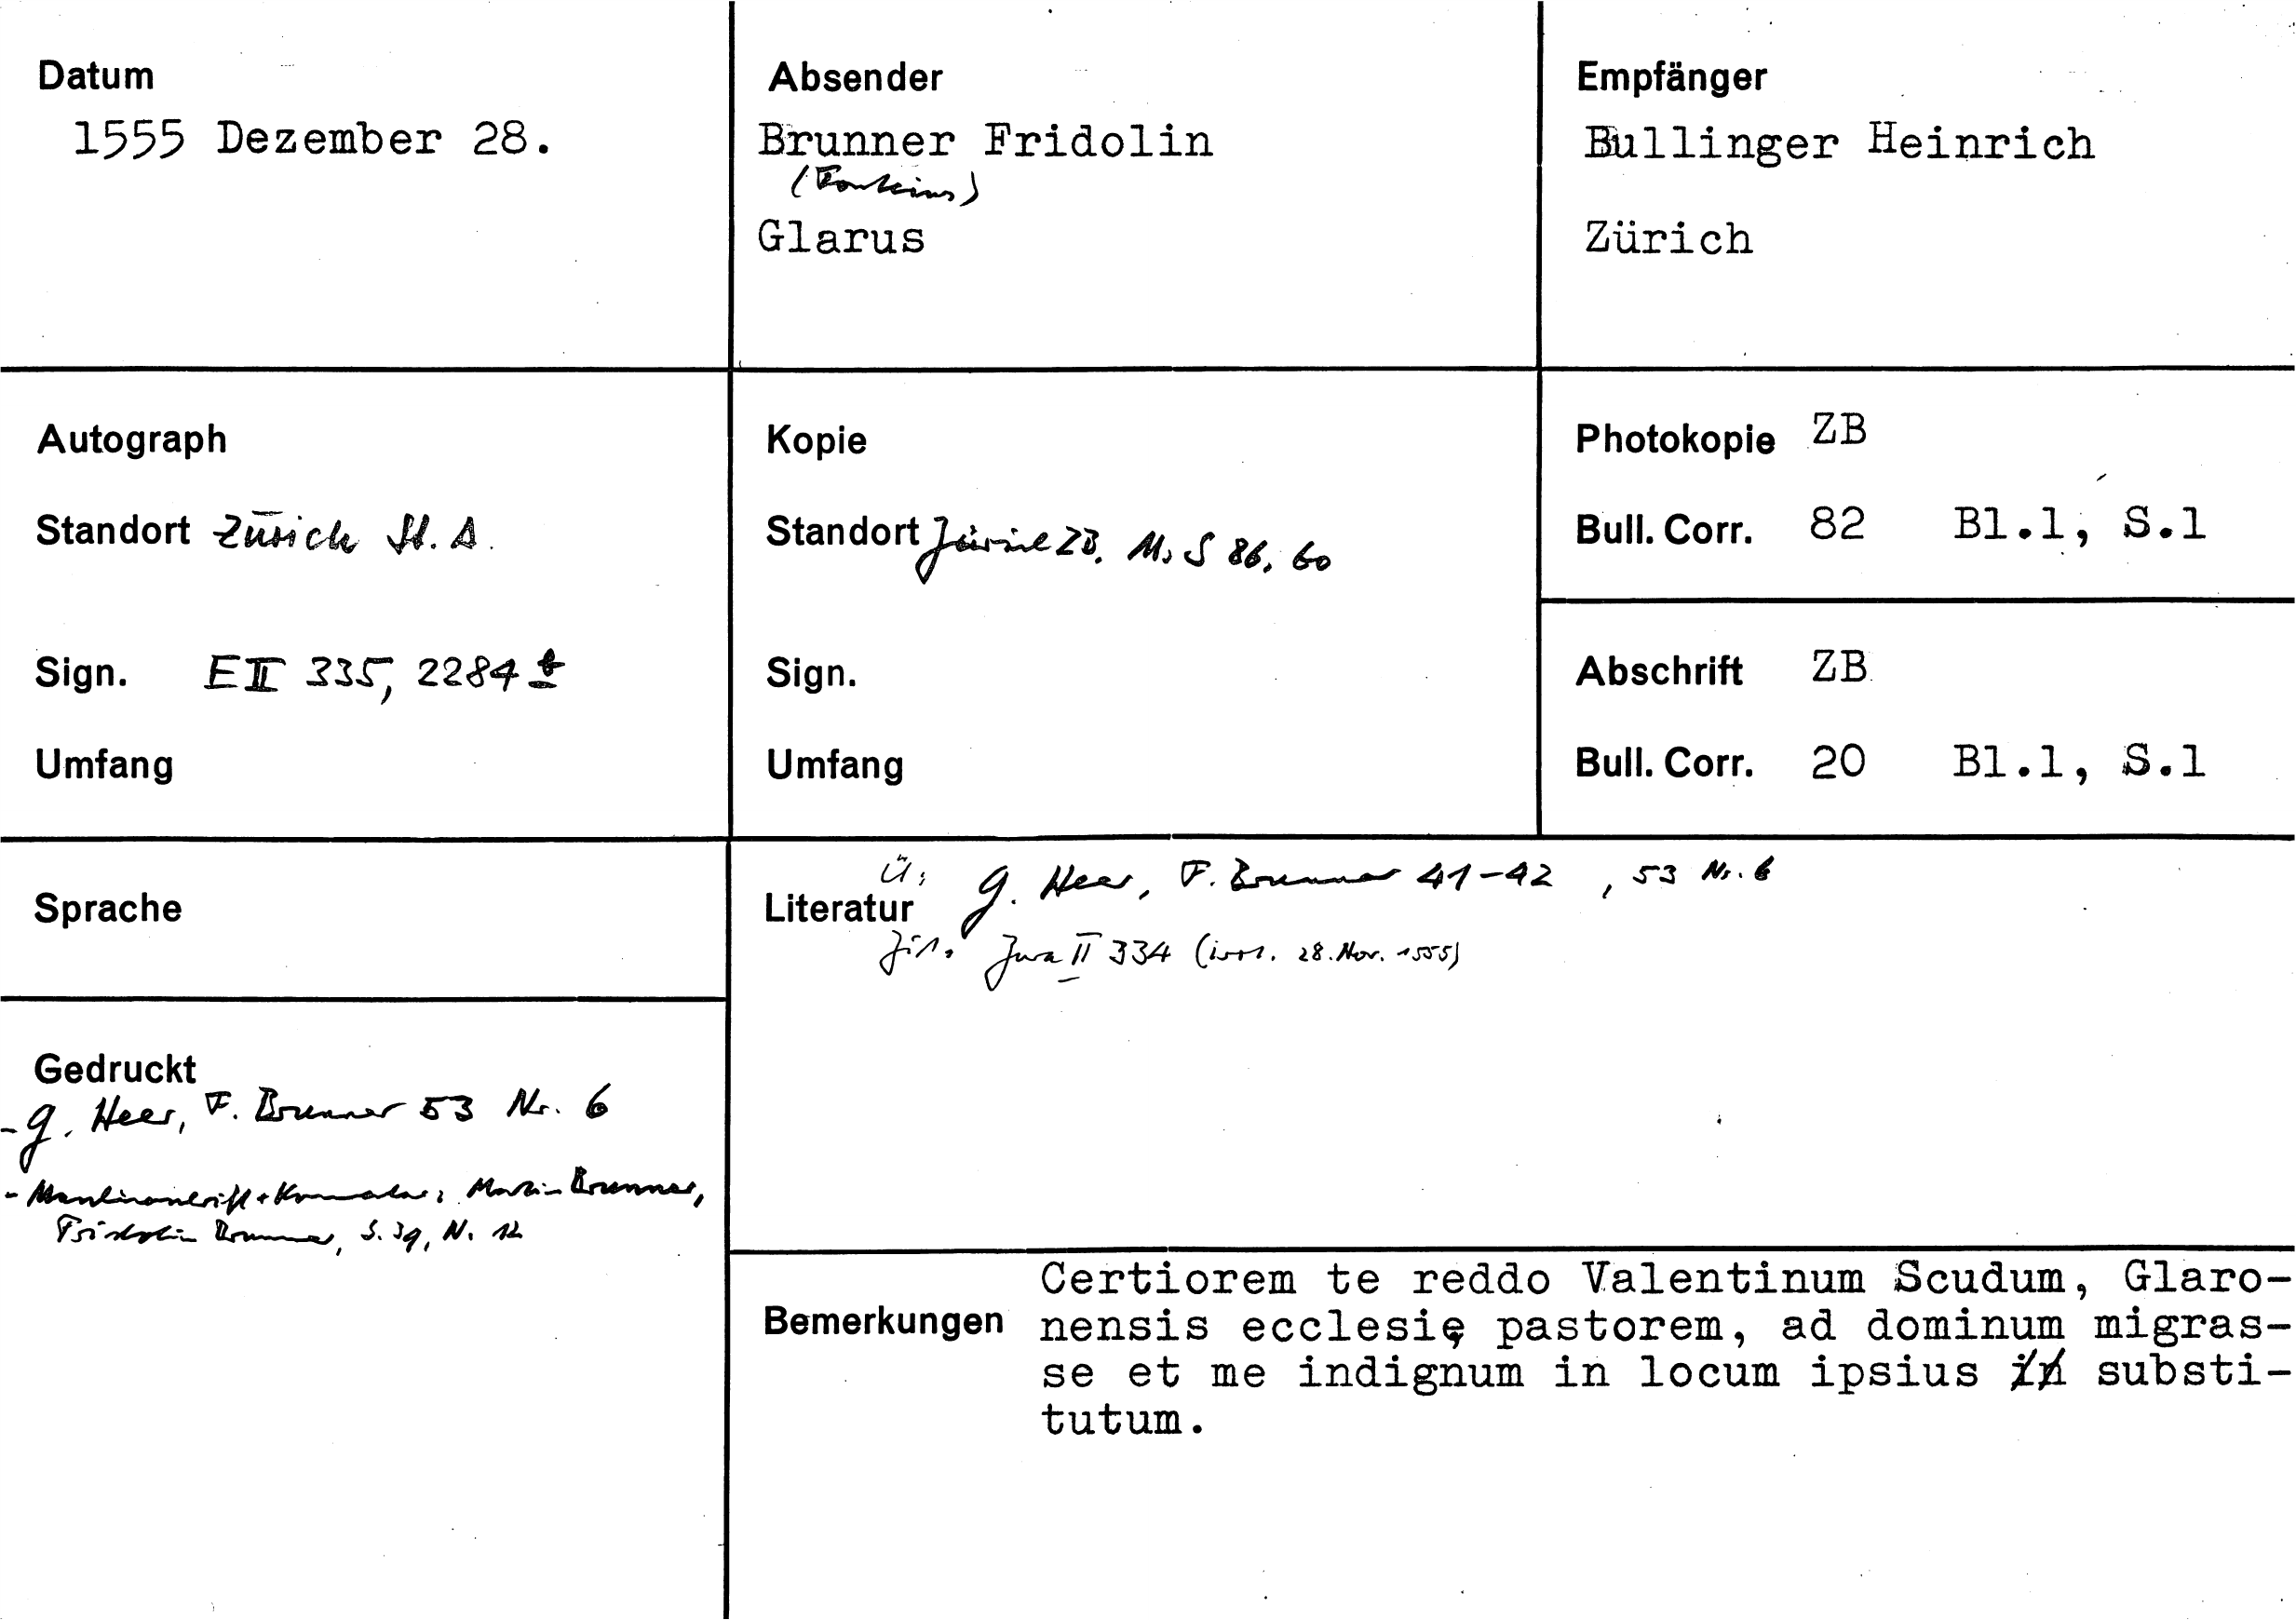 Datum
1555 Dezember 28.
Absender
Brunner Fridolin
(Fonteius)
Glarus
Empfänger
Bullinger Heinrich
Zürich
Autograph
Standort Zürich St. A.
Sign. E II 335, 2284
Umfang
Kopie
Standort Zürich ZB. Ms S 86, 60
Sign.
Umfang
Photokopie ZB
Bull. Corr. 82 Bl.1, S.1
Abschrift ZB
Bull. Corr. 20 Bl.1, S.1
Sprache
Gedruckt
- G. Heer, F. Brunner 53 Nr. 6
- Martin Brunner,
Fridolin Brunner, S. 39, N. 12
Ü: G. Heer, F. Brunner 41-42, 53 Nr. 6
Literatur
Zit. Jura II 334 (irrt. 28. Nov. 1555)
Bemerkungen
Certiorem te reddo Valentinum Scudum, Glaro-
nensis ecclesię pastorem, ad dominum migras-
se et me indignum in locum ipsius in substi-
tutum.